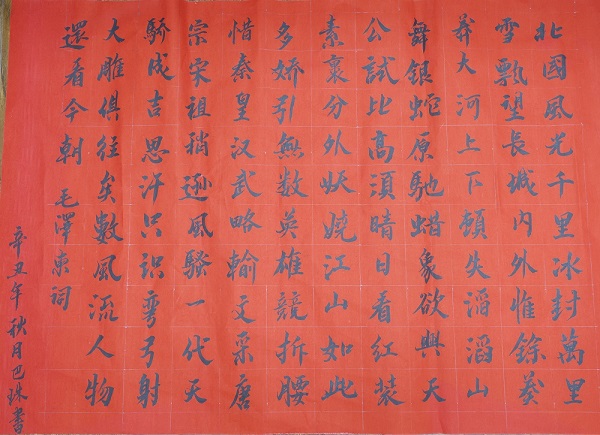 北國風光千里冰封萬里
雪飄望長城內外惟餘莽
莽大河上下頓失滔滔山
舞銀蛇原馳蜡象欲與天
公試比高須晴日看紅裝
素裹分外妖嬈江山如此
多嬌引無数英雄競折腰
惜秦皇汉武略輸文采唐
宗宋祖稍遜風騷一代天
驕成吉思汗只識彎弓射
大雕俱往矣數風流人物
還看今朝 毛澤東詞
辛丑年秋月巴珠書